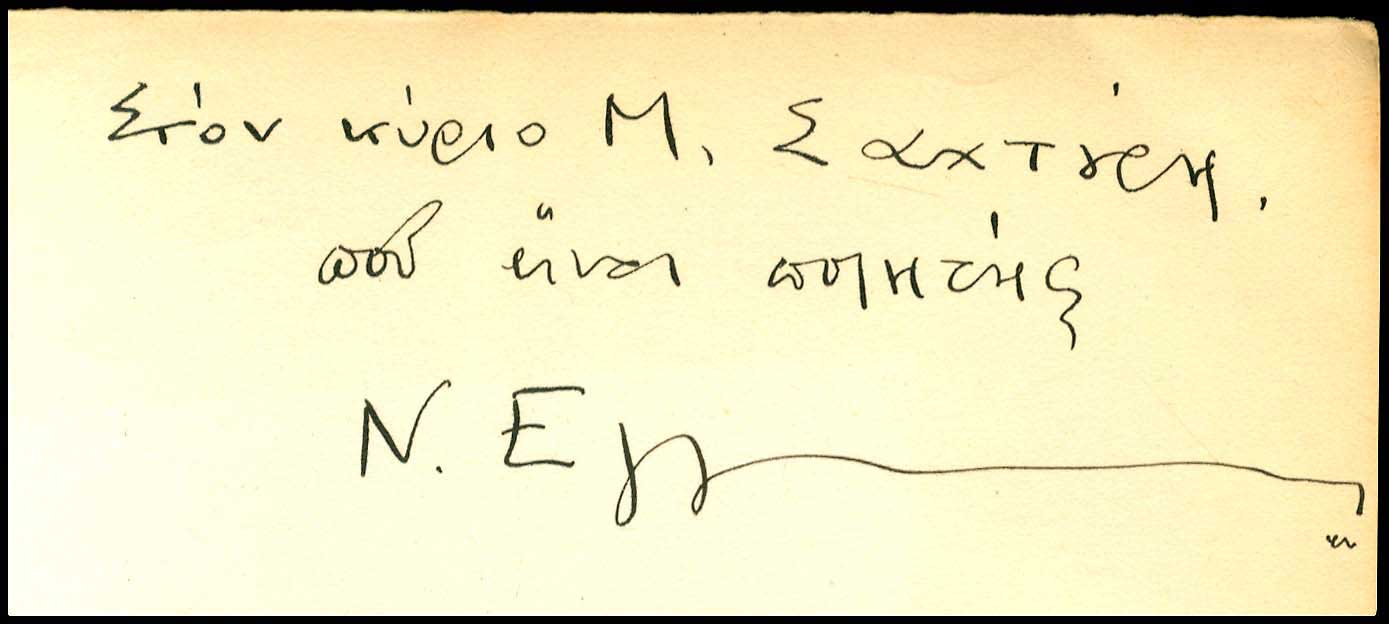 Στόν κύριο Μ. Σαχτούρη,
πού εἶναι ποιητής
Ν. Εγγ